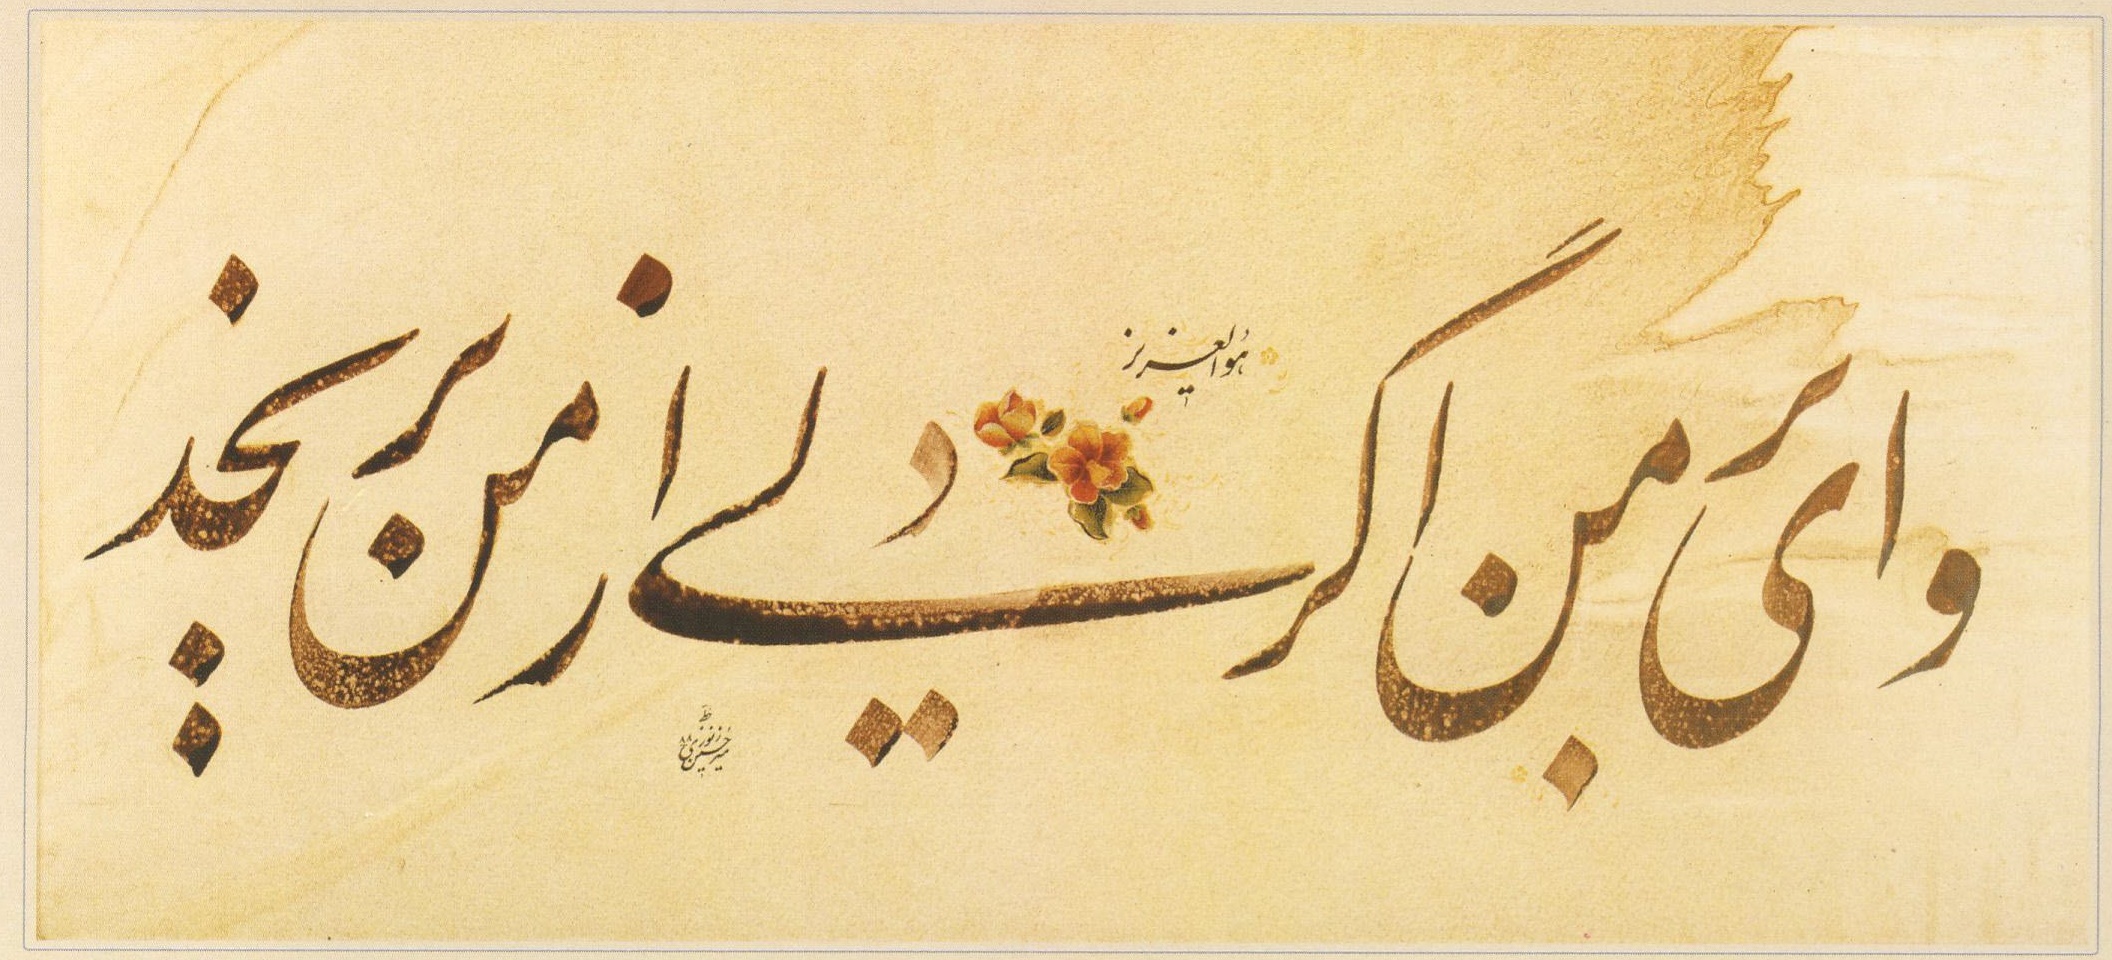 هُوالعزیز
وای بر من اگر دلی از من برنجد
میرحسین زنوزی